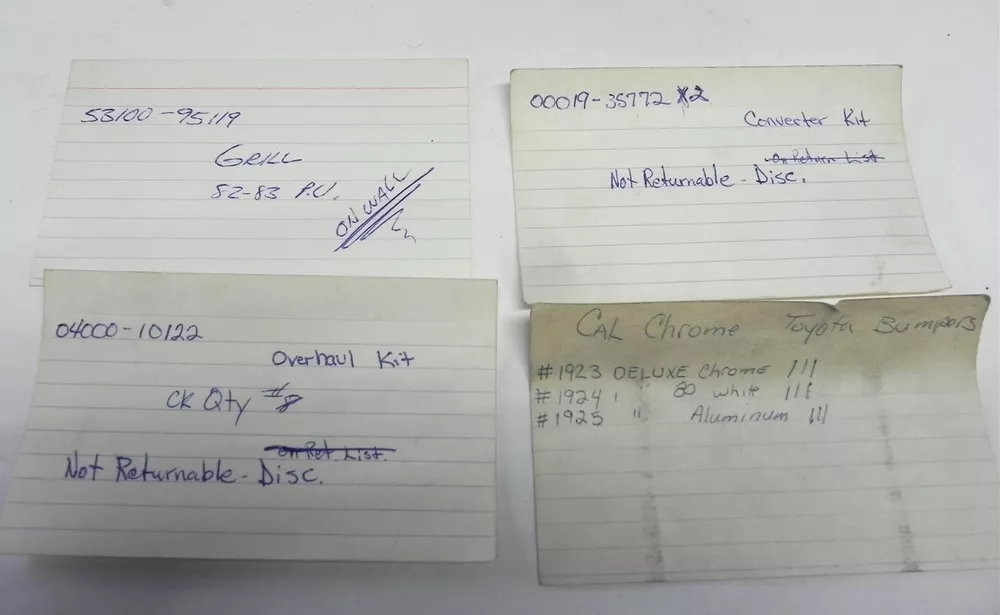 53100-95119
GRILL
82-83 P.U.
ON WALL
00019-35772 X2
Converter Kit
on Return List
Not Returnable - Disc.
04000-10122
Overhaul Kit
CK Qty #8
on Ret. List.
Not Returnable - Disc.
CAL Chrome Toyota Bumpers
#1923 DELUXE Chrome III
#1924 " 80 white III
#1925 " Aluminum III